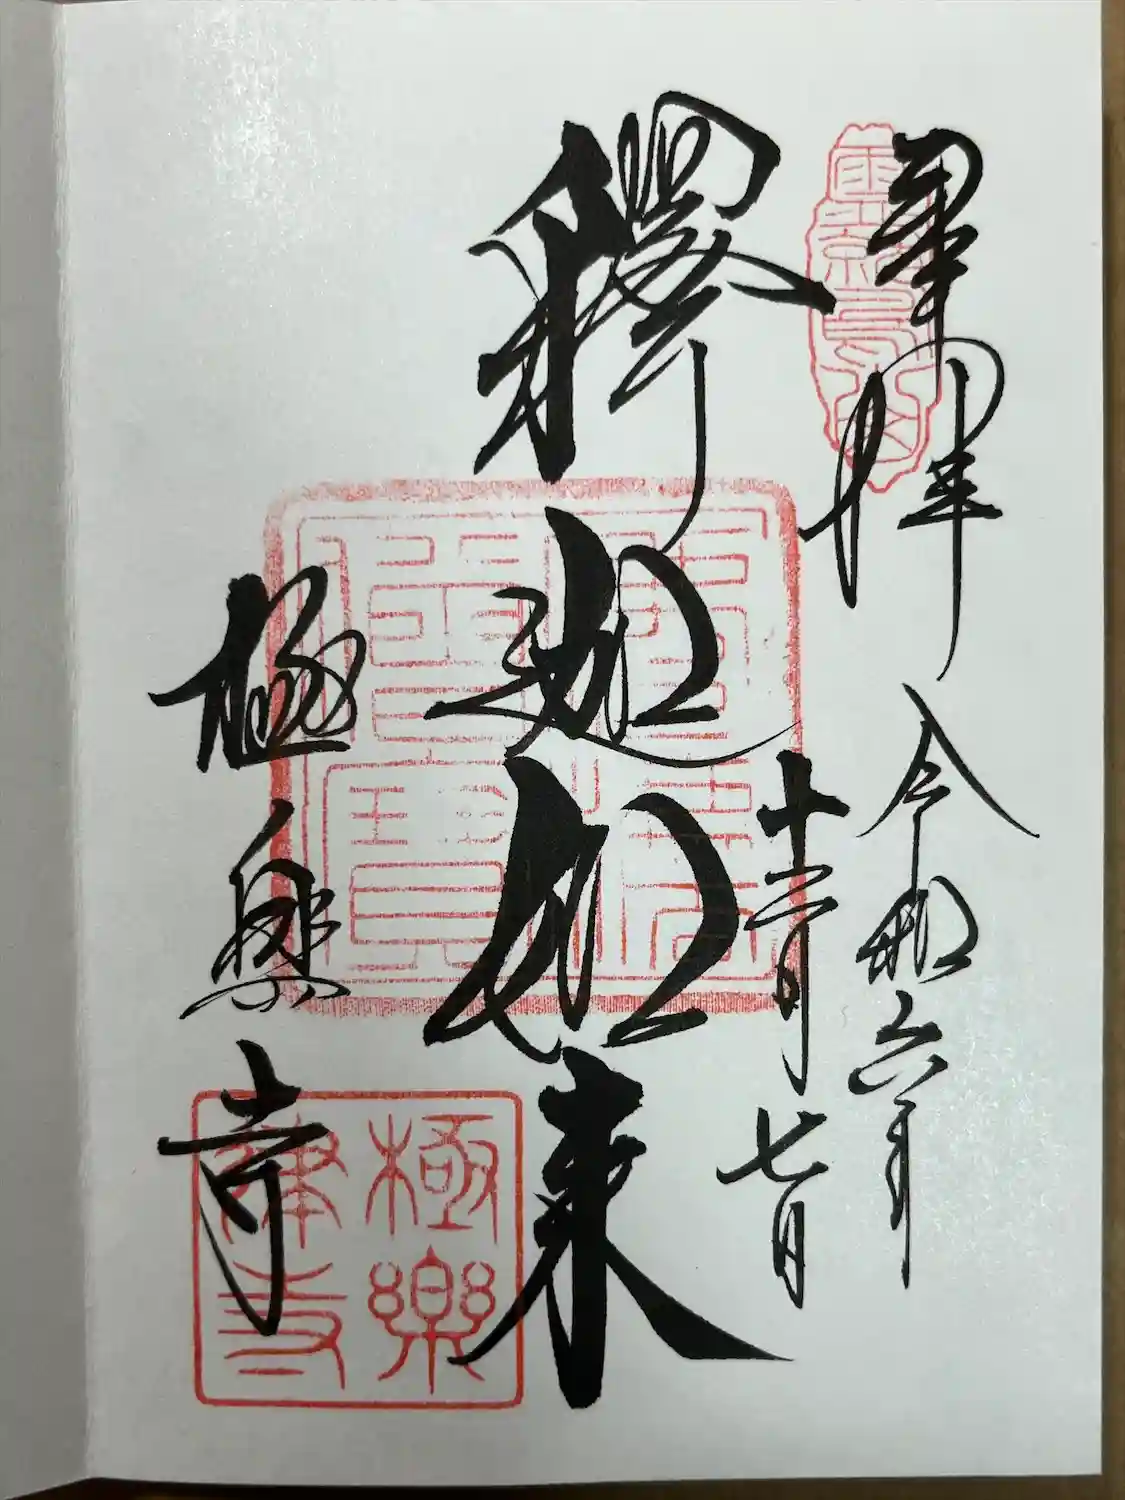 奉拝
令和六年
十二月七日
釋迦如来
極樂寺
極樂
律寺